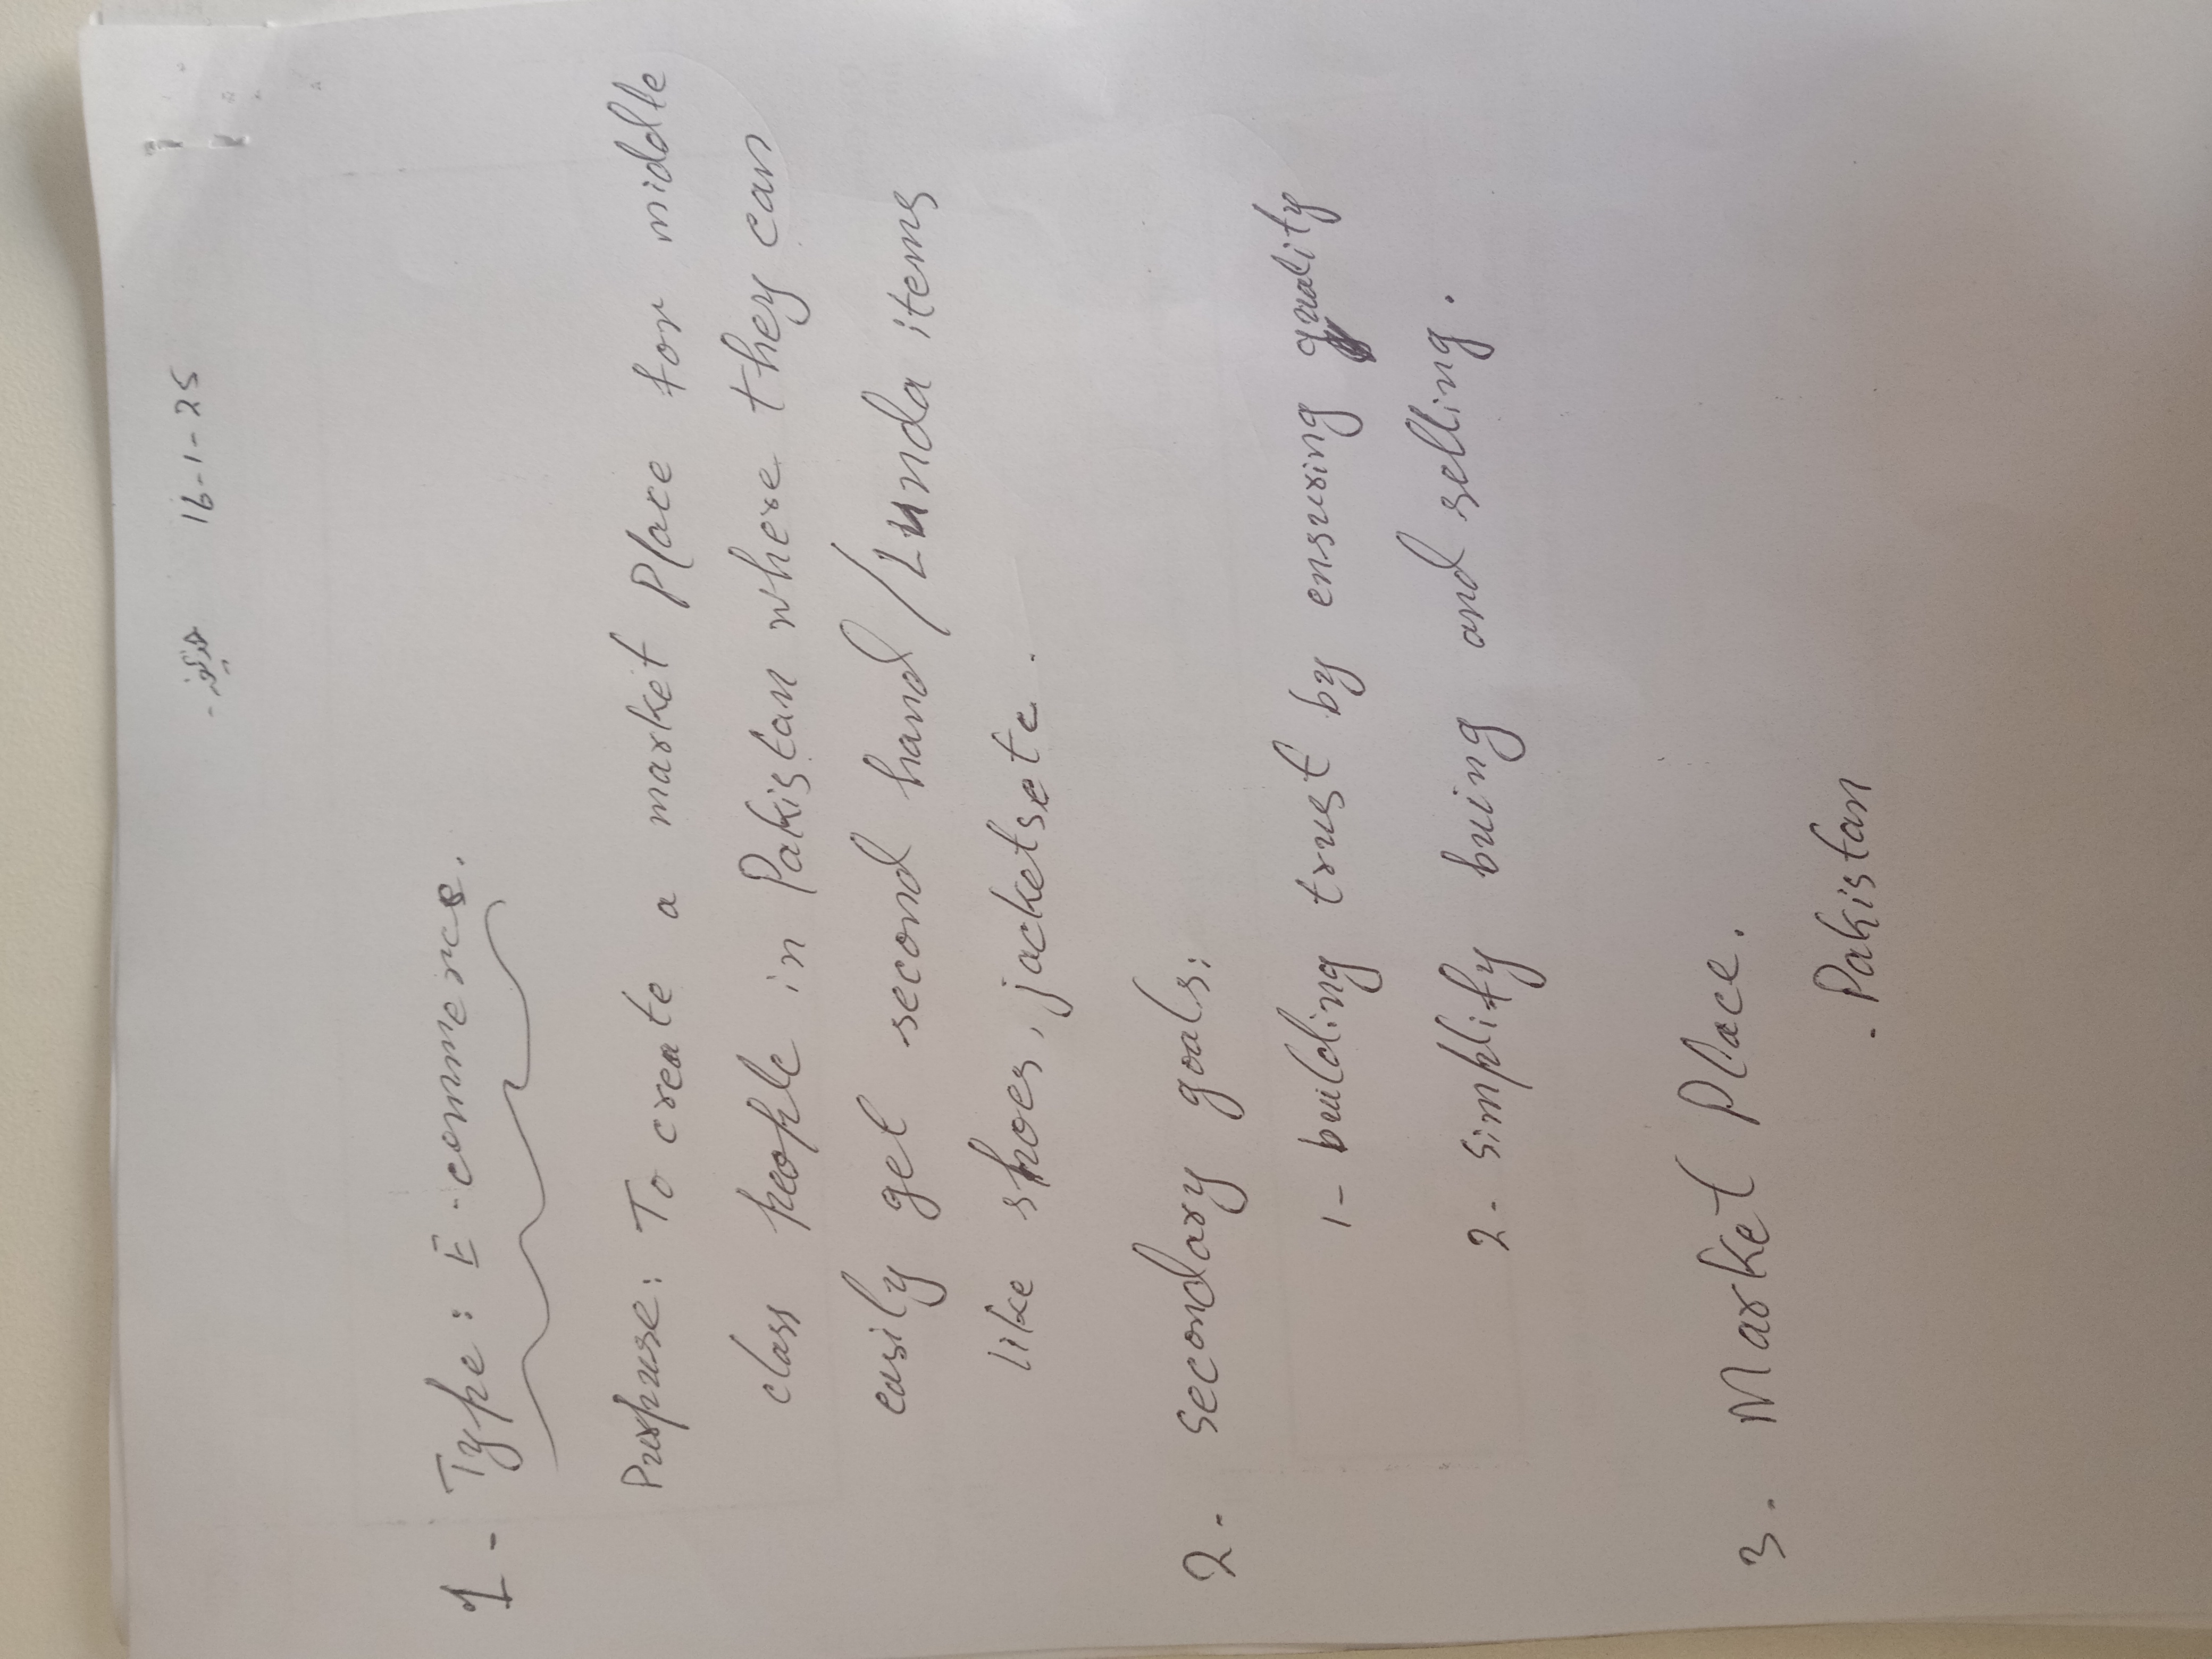 16-1-25
1- Type: E-commerce.
Purpuse: To create a market Place for middle
class people in Pakistan where they can
easily get second hand/Lunda items
like shoes, jacketsetc.
2. secondary goals:
1- building trust by ensuring quality
2- simplify buing and selling.
3. Market Place.
- Pakistan